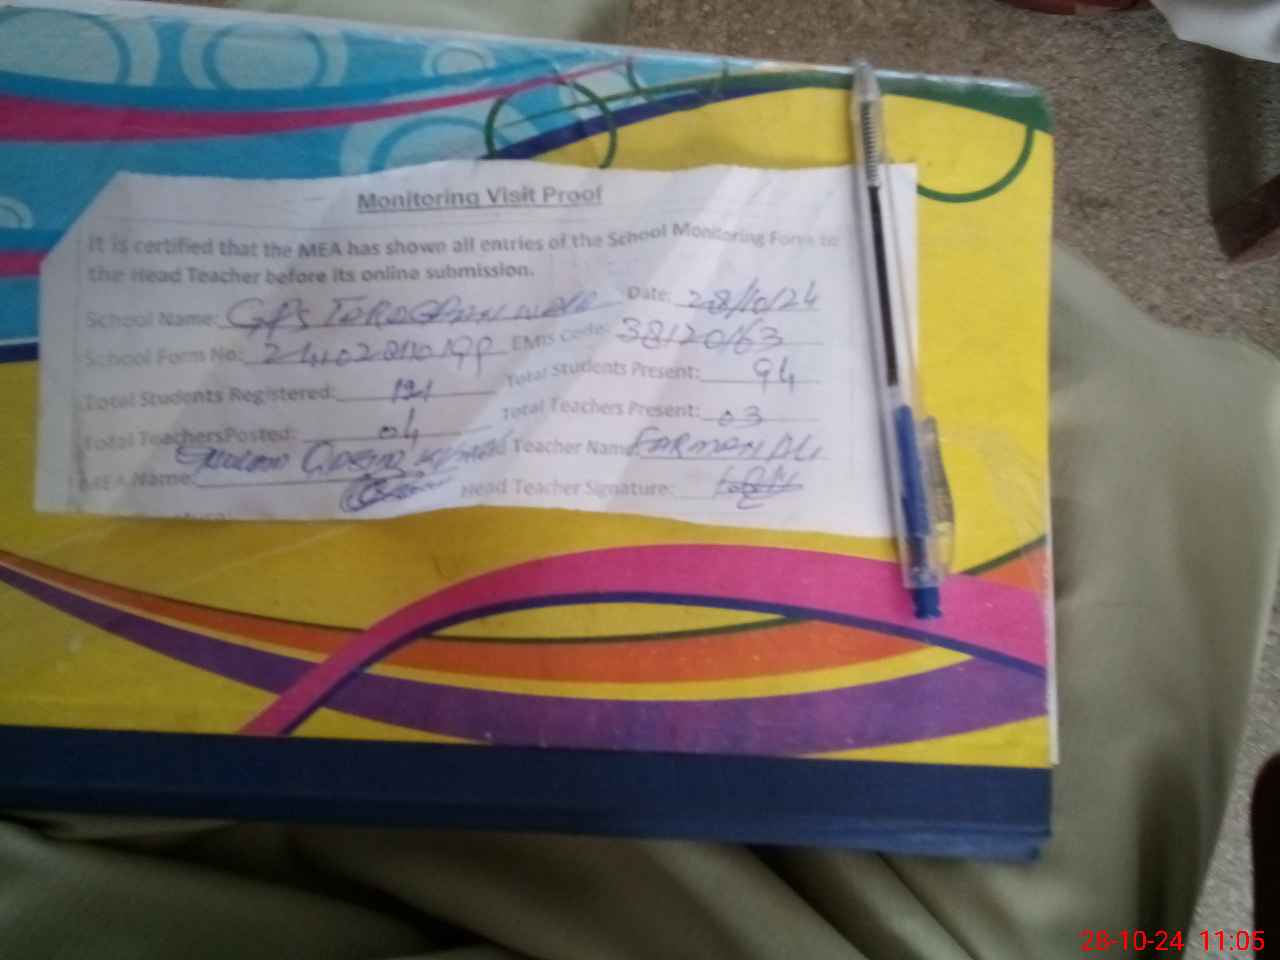 Monitoring Visit Proof
It is certified that the MEA has shown all entries of the School Monitoring Form to
the Head Teacher before its online submission.
School Name: GPS Date: 28/10/24
School Form No: EMIS Code: 38120163
Total Students Registered: 121 Total Students Present: 94
Total TeachersPosted: 04 Total Teachers Present: 03
MEA Name: Head Teacher Name FARMAN ALI
Head Teacher Signature:
28-10-24 11:05